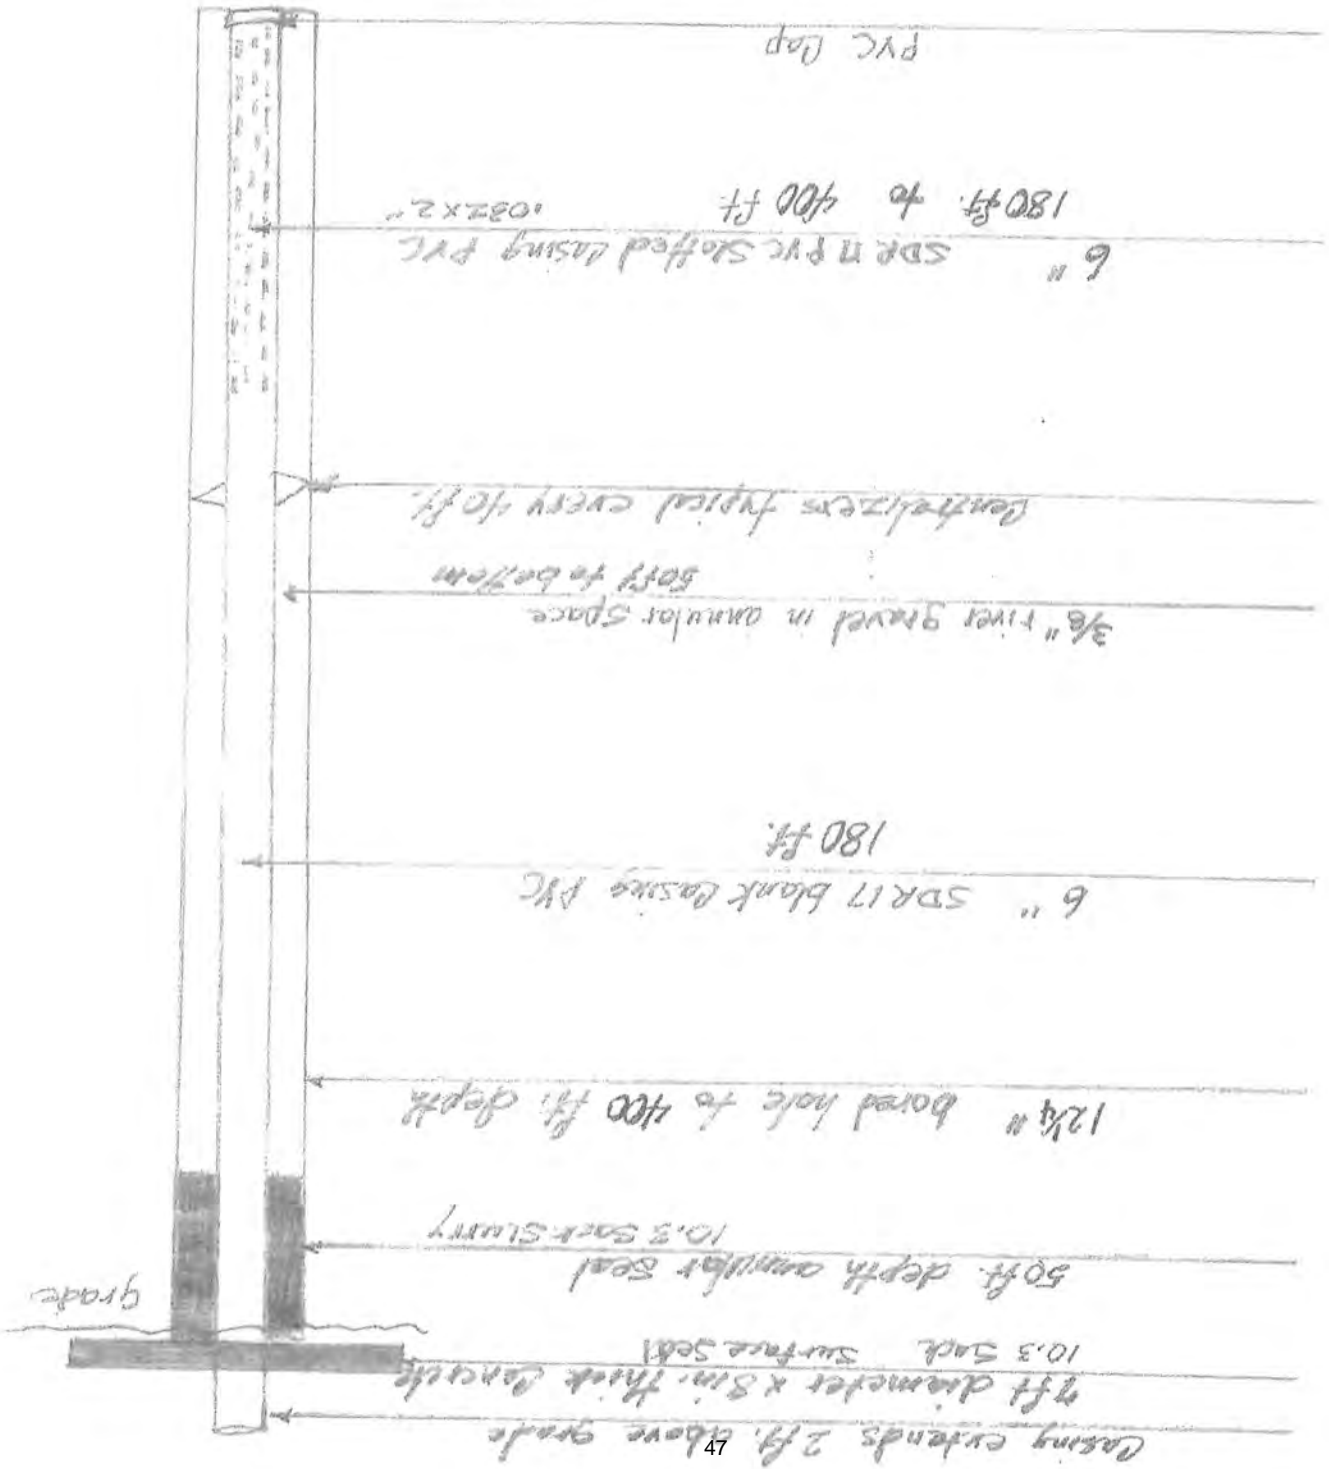 Casing extends 2 ft. above grade
7 ft diameter x 8 in. thick Concrete
10.3 Sack Surface Seal
grade
50 ft. depth annular Seal
10.3 Sack Slurry
12¼" bored hole to 400 ft. depth
6" SDR 17 blank Casing PVC
180 ft.
3/8" river gravel in annular Space
50 ft to bottom
Centralizers typical every 40 ft.
6" SDR 17 PVC Slotted Casing PVC
180 ft. to 400 ft .032 x 2"
PVC Cap
47